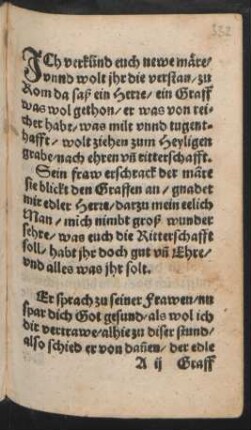 332
ICh verkünd euch newe märe/
vnnd wolt jhr die verstan/zu
Rom da saß ein Herre/ein Graff
was wol gethon/er was von rei-
cher habt/was milt vnnd tugent-
hafft/wolt ziehen zum Heyligen
grabe/nach ehren vñ ritterschafft.
Sein fraw erschrack der märe
sie blickt den Graffen an/gnadet
mir edler Herre/dartzu mein eelich
Man/mich nimbt groß wunder
sehre/was euch die Ritterschafft
soll/habt jhr doch gut vñ Ehre/
vnd alles was jhr solt.
Er sprach zu seiner Frawen/nu
spar dich Got gesund/als wol ich
dir vertrawe/alhie zu diser stund/
also schied er von dañen/der edle
A ij Graff